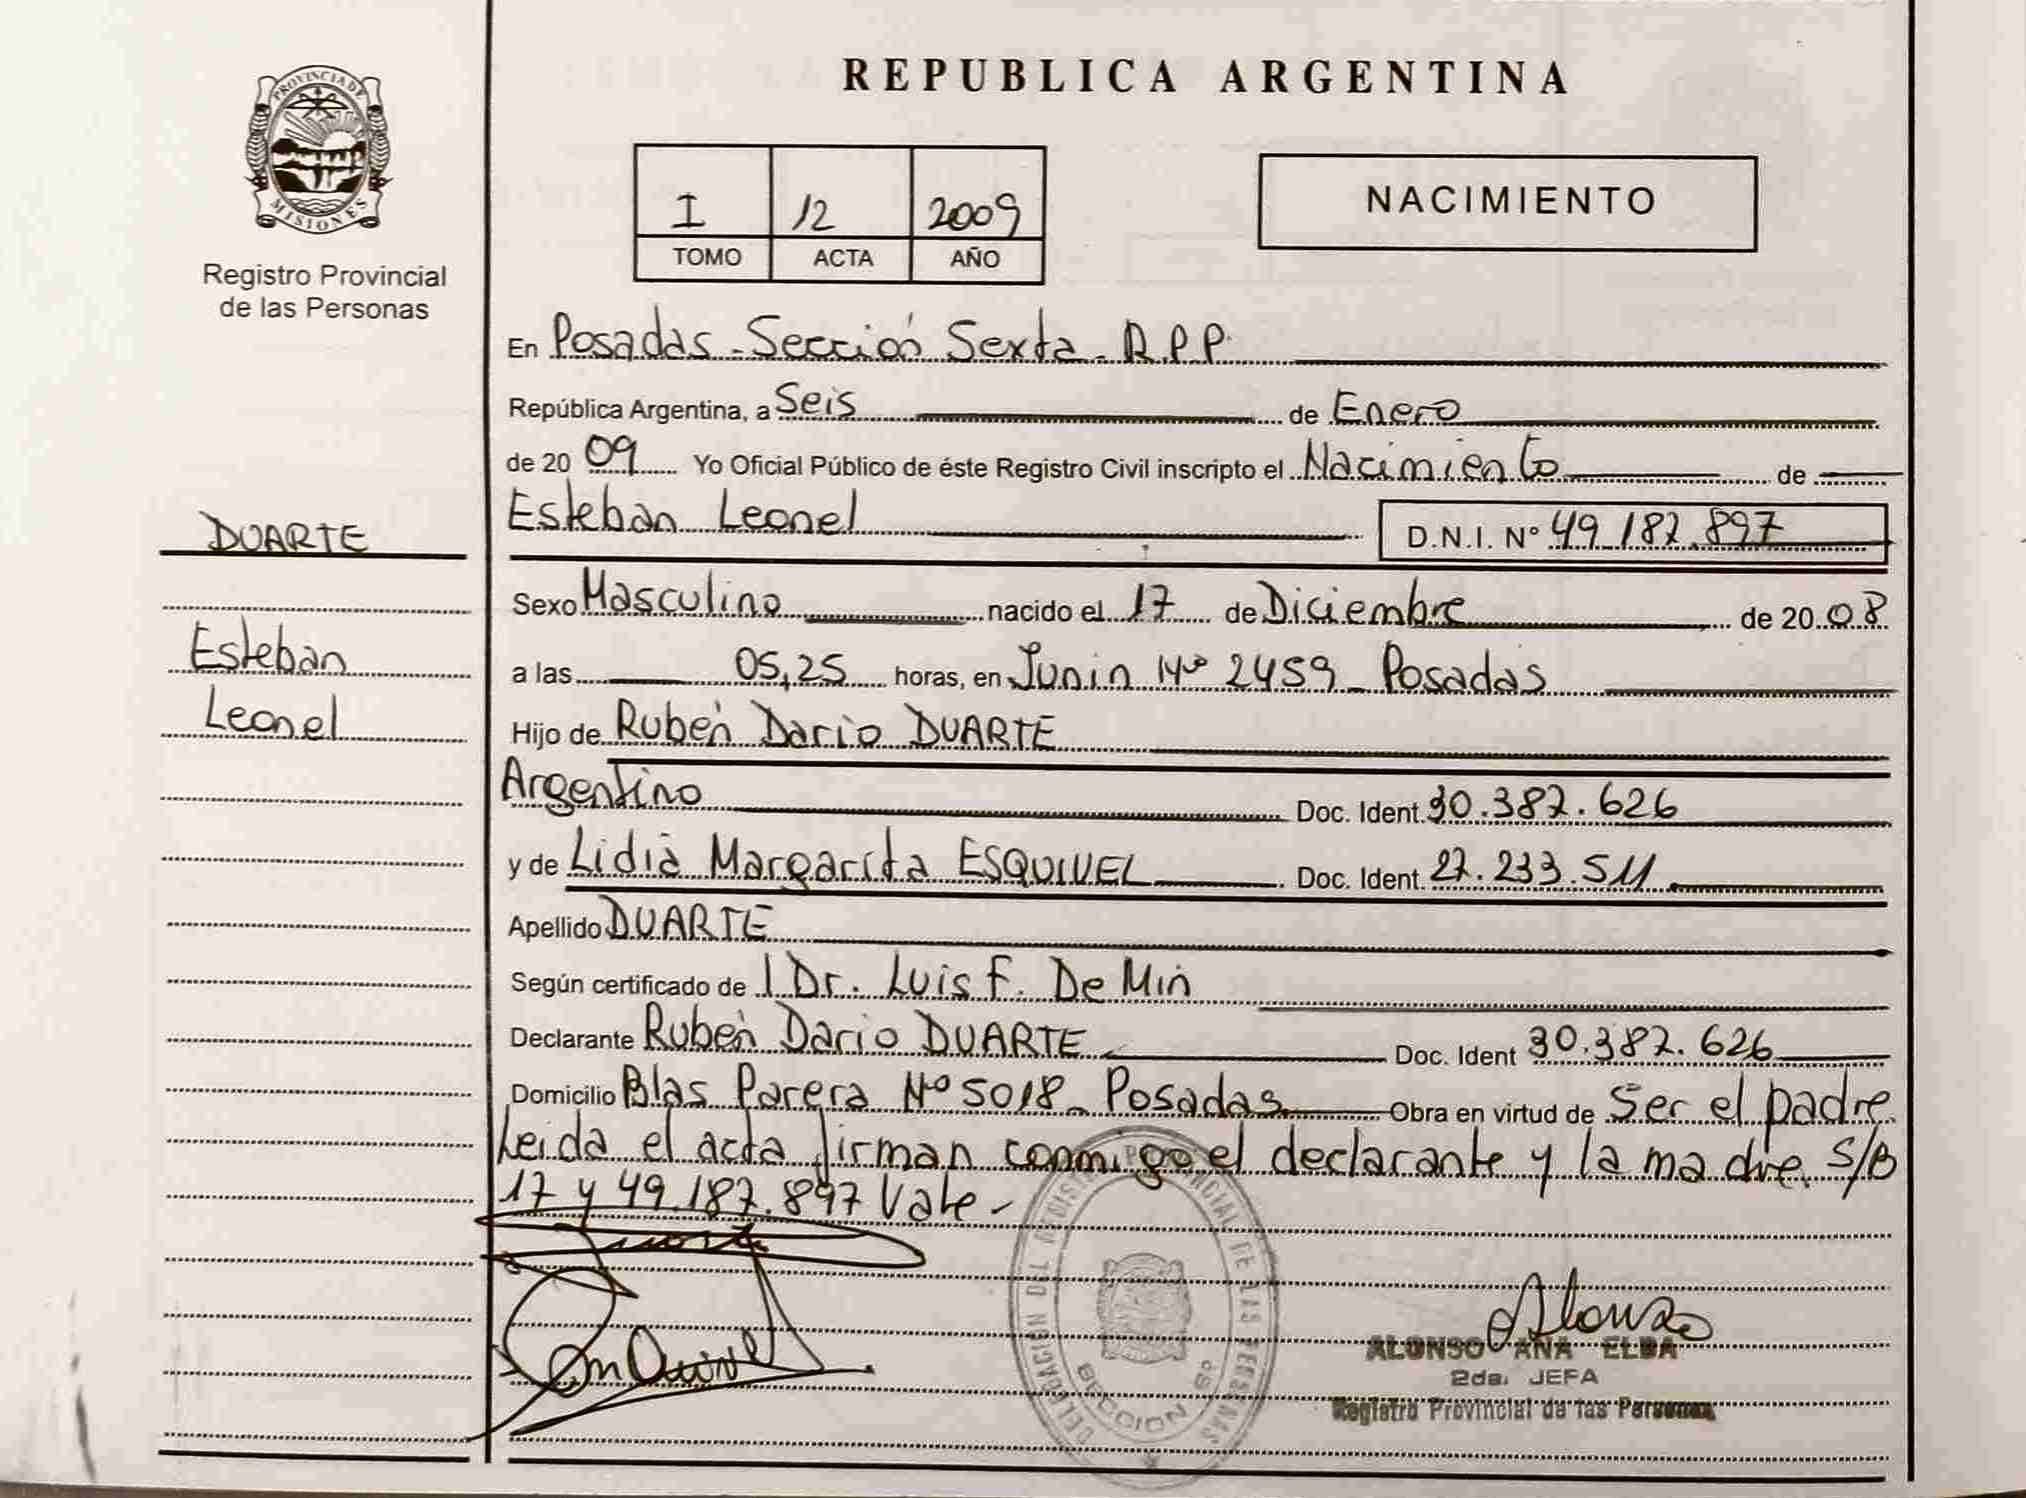 REPUBLICA ARGENTINA
PROVINCIA DE
MISIONES
Registro Provincial
de las Personas
I 12 2009
TOMO ACTA AÑO
NACIMIENTO
En Posadas - Sección Sexta - R.P.P.
República Argentina, a Seis de Enero
de 20 09 Yo Oficial Público de éste Registro Civil inscripto el Nacimiento de
DUARTE
Esteban Leonel D.N.I. Nº 49.187.897
Sexo Masculino nacido el 17 de Diciembre de 20 08
Esteban
a las 05,25 horas, en Junin Nº 2459 - Posadas
Leonel
Hijo de Rubén Dario DUARTE
Argentino Doc. Ident. 30.387.626
y de Lidia Margarita ESQUIVEL Doc. Ident. 27.233.511
Apellido DUARTE
Según certificado de l Dr. Luis F. De Min
Declarante Rubén Dario DUARTE Doc. Ident 30.387.626
Domicilio Blas Parera Nº 5018 - Posadas Obra en virtud de Ser el padre.
Leida el acta firman conmigo el declarante y la madre. S/B
17 y 49.187.897 Vale -
DELEGACION DEL REGISTRO PROVINCIAL DE LAS PERSONAS
SECCION 6º
Alonso
ALONSO ANA ELBA
2da. JEFA
Registro Provincial de las Personas